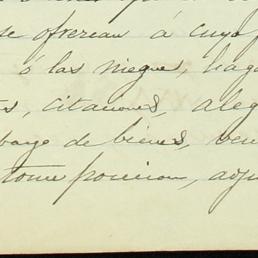 se ofrescan á cuyo
ó las niegue, haga
citaciones, aleg
de bienes, ven
tome posicion, adju